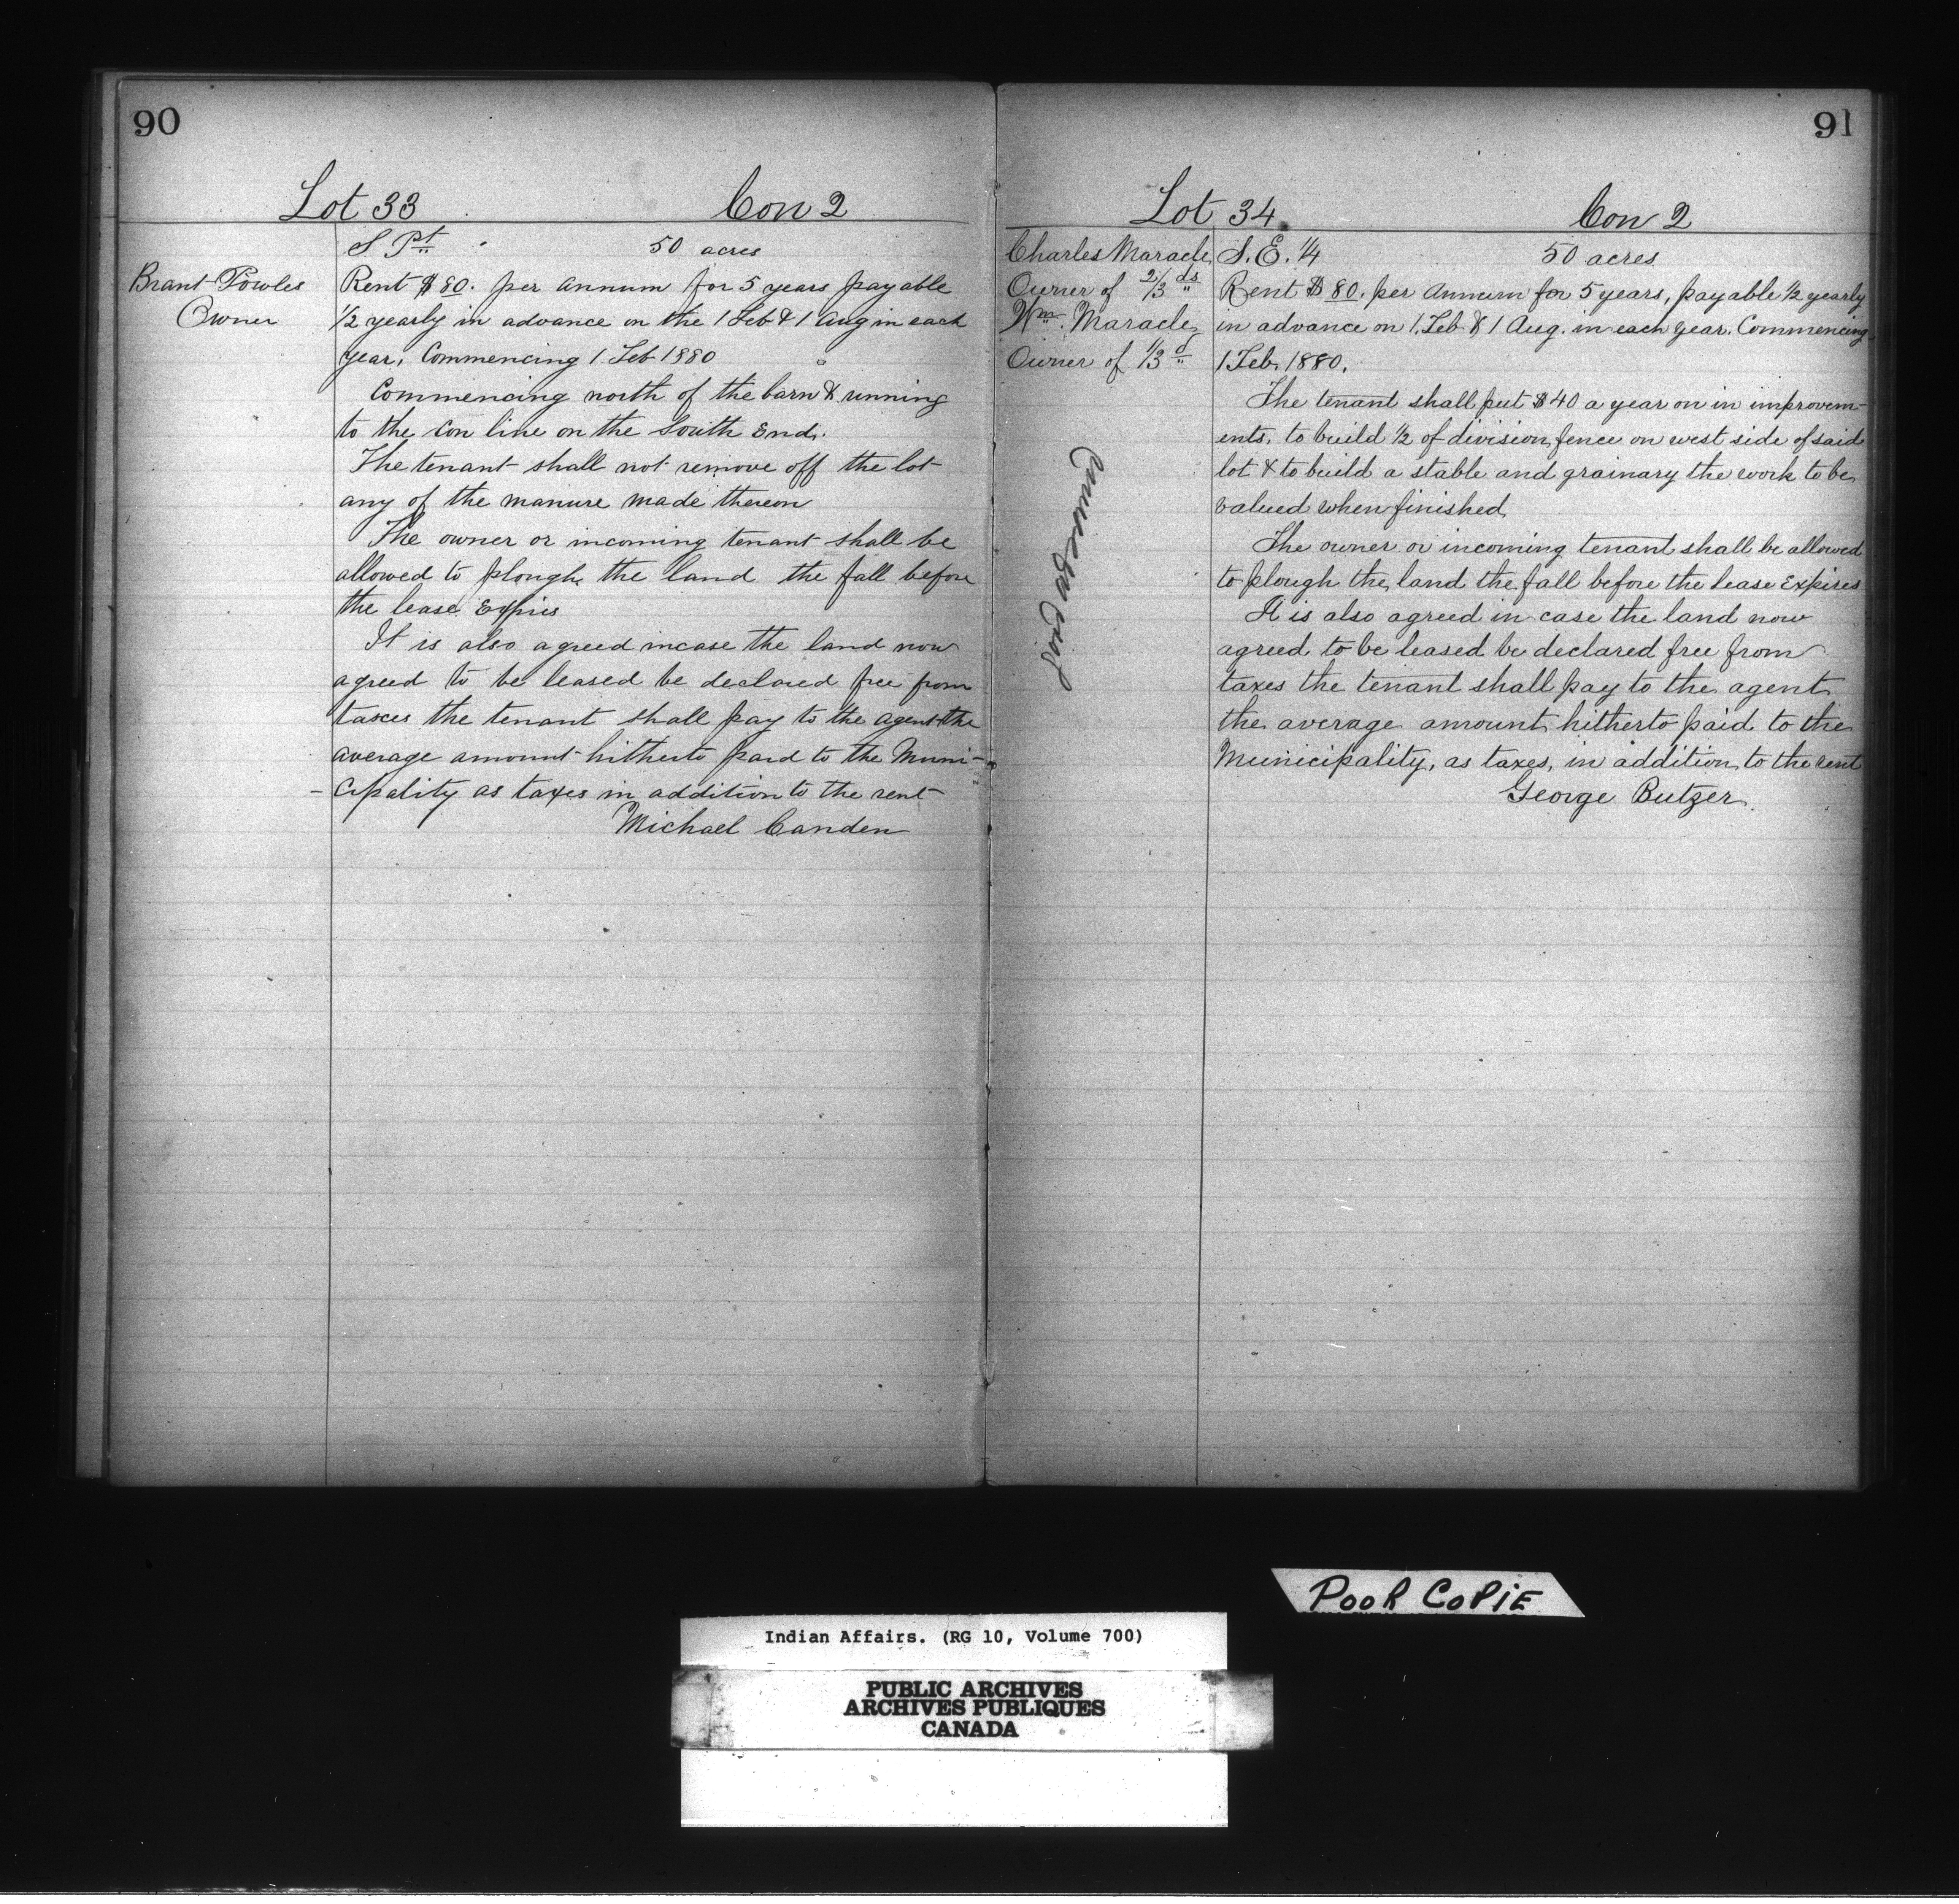 90
Lot 33 Con 2
S Pt 50 acres
Brant Powles
Owner
Rent $80. per annum for 5 years payable
1/2 yearly in advance on the 1 Feb & 1 Aug in each
year, Commencing 1 Feb 1880
Commencing north of the barn & running
to the con line on the South End.
The tenant shall not remove off the lot
any of the manure made thereon
The owner or incoming tenant shall be
allowed to plough the land the fall before
the lease Expires
It is also agreed incase the land now
agreed to be leased be declared free from
taxes the tenant shall pay to the agent the
average amount hitherto paid to the Muni-
-cipality as taxes in addition to the rent
Michael Canden
91
Lot 34 Con 2
Charles Maracle
Owner of 2/3ds
Wm. Maracle
Owner of 1/3d
S. E. 1/4 50 acres
Rent $80. per Annum for 5 years, payable 1/2 yearly
in advance on 1. Feb & 1 Aug. in each year. Commencing
1 Feb. 1880.
The tenant shall put $40 a year on in improvem-
ents, to build 1/2 of division fence on west side of said
lot & to build a stable and grainary the work to be
valued when finished
The owner or incoming tenant shall be allowed
to plough the land the fall before the lease Expires
It is also agreed in case the land now
agreed to be leased be declared free from
taxes the tenant shall pay to the agent
the average amount hitherto paid to the
Municipality, as taxes, in addition to the rent
George Butzer
POOR COPIE
Indian Affairs. (RG 10, Volume 700)
PUBLIC ARCHIVES
ARCHIVES PUBLIQUES
CANADA